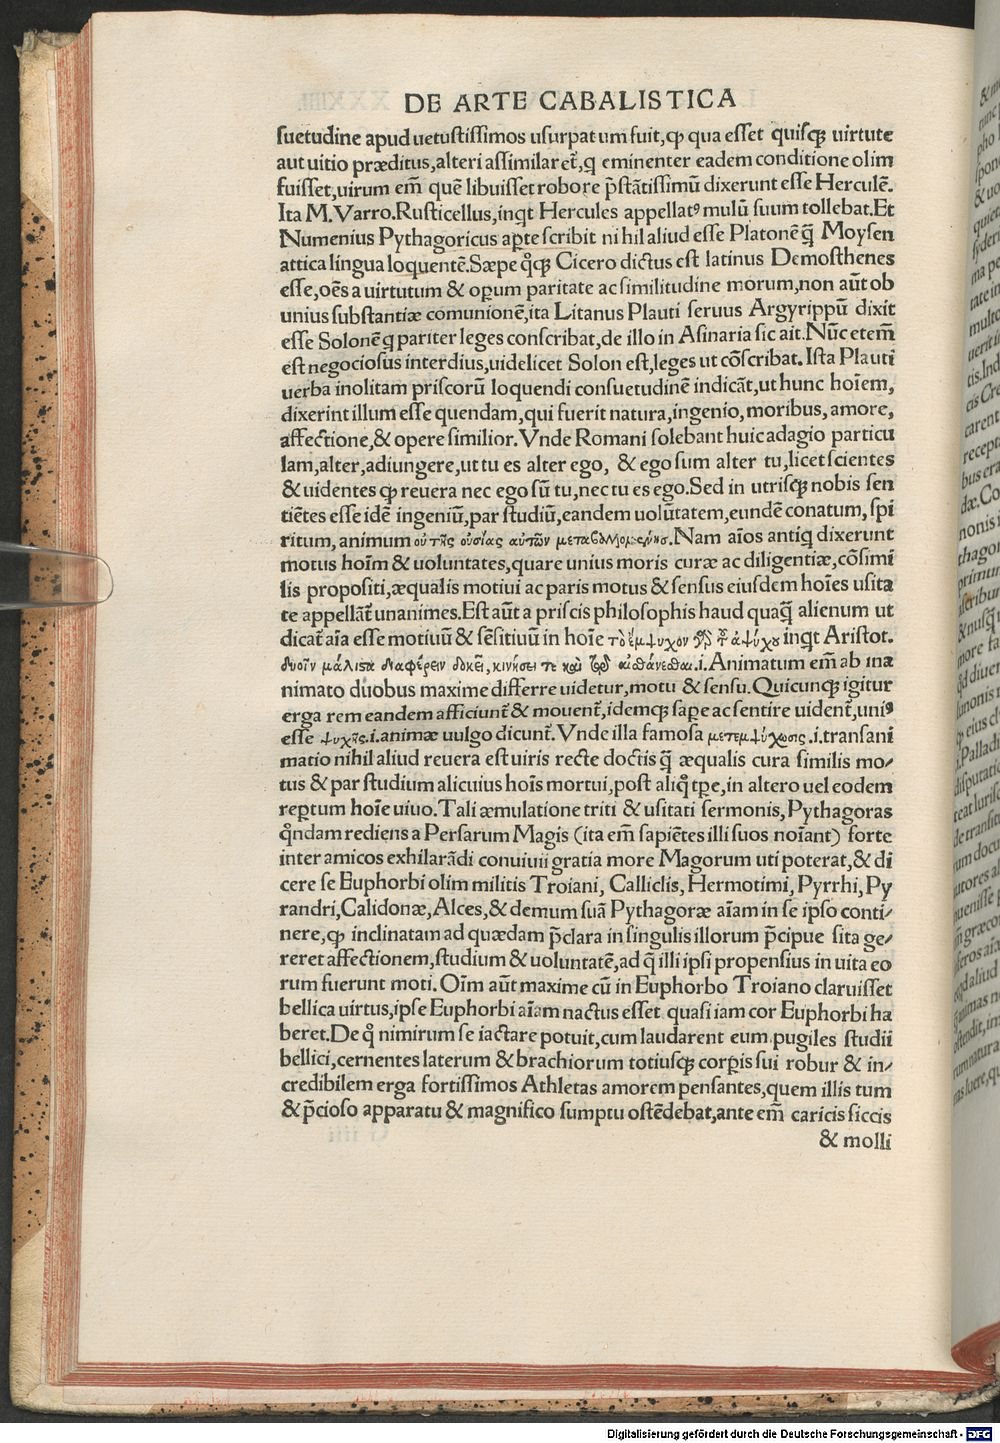 DE ARTE CABALISTICA
suetudine apud uetustissimos usurpatum fuit, ꝙ qua esset quisqꝫ uirtute
aut uitio præditus, alteri assimilaret᷑, q eminenter eadem conditione olim
fuisset, uirum em̄ quē libuisset robore p̄stātissimū dixerunt esse Herculē.
Ita M. Varro. Rusticellus, inqt Hercules appellatꝰ mulū suum tollebat. Et
Numenius Pythagoricus aꝑte scribit nihil aliud esse Platonē q̄ Moysen
attica lingua loquentē. Sæpe qͦqꝫ Cicero dictus est latinus Demosthenes
esse, oēs a uirtutum & oꝑum paritate ac similitudine morum, non aūt ob
unius substantiæ comunionē, ita Litanus Plauti seruus Argyrippū dixit
esse Solonē q pariter leges conscribat, de illo in Asinaria sic ait. Nūc etem̄
est negociosus interdius, uidelicet Solon est, leges ut cōscribat. Ista Plauti
uerba inolitam priscorū loquendi consuetudinē indicāt, ut hunc hoīem,
dixerint illum esse quendam, qui fuerit natura, ingenio, moribus, amore,
affectione, & opere similior. Vnde Romani solebant huic adagio particu
lam, alter, adiungere, ut tu es alter ego, & ego sum alter tu, licet scientes
& uidentes ꝙ reuera nec ego sū tu, nec tu es ego. Sed in utrisqꝫ nobis sen
tiētes esse idē ingeniū, par studiū, eandem uolūtatem, eundē conatum, spi
ritum, animum οὐ τῆς οὐσίας αὐτῶν Nam aīos antiq dixerunt
motus hoīm & uoluntates, quare unius moris curæ ac diligentiæ, cōsimi
lis propositi, æqualis motiui ac paris motus & sensus eiusdem hoīes usita
te appellāt᷑ unanimes. Est aūt a priscis philosophis haud quaq̄ alienum ut
dicat᷑ aīa esse motiuū & sēsitiuū in hoīe τὸ ἔμψυχον ἀψύχου inqt Aristot.
δυοῖν μάλιστα διαφέρειν δοκεῖ, κινήσει τε καὶ αἰσθάνεσθαι. i. Animatum em̄ ab ina
nimato duobus maxime differre uidetur, motu & sensu. Quicunqꝫ igitur
erga rem eandem afficiunt᷑ & mouent᷑, idemqꝫ sapere ac sentire uident᷑, uniꝰ
esse ψυχῆς. i. animæ uulgo dicunt᷑. Vnde illa famosa μετεμψύχωσις. i. transani
matio nihil aliud reuera est uiris recte doctis q̄ æqualis cura similis mo⸗
tus & par studium alicuius hoīs mortui, post aliqͦ tꝑe, in altero uel eodem
reꝑtum hoīe uiuo. Tali æmulatione triti & usitati sermonis, Pythagoras
qͦndam rediens a Persarum Magis (ita em̄ sapiētes illi suos noīant) forte
inter amicos exhilarādi conuiuii gratia more Magorum uti poterat, & di
cere se Euphorbi olim militis Troiani, Calliclis, Hermotimi, Pyrrhi, Py
randri, Calidonæ, Alces, & demum suā Pythagoræ aīam in se ipso conti⸗
nere, ꝙ inclinatam ad quædam p̄clara in singulis illorum p̄cipue sita ge⸗
reret affectionem, studium & uoluntatē, ad q̄ illi ipsi propensius in uita eo
rum fuerunt moti. Oīm aūt maxime cū in Euphorbo Troiano claruisset
bellica uirtus, ipse Euphorbi aīam nactus esset quasi iam cor Euphorbi ha
beret. De qͦ nimirum se iactare potuit, cum laudarent eum pugiles studii
bellici, cernentes laterum & brachiorum totiusqꝫ corꝑis sui robur & in⸗
credibilem erga fortissimos Athletas amorem pensantes, quem illis tum
& p̄cioso apparatu & magnifico sumptu ostēdebat, ante em̄ caricis siccis
& molli
Digitalisierung gefördert durch die Deutsche Forschungsgemeinschaft - DFG